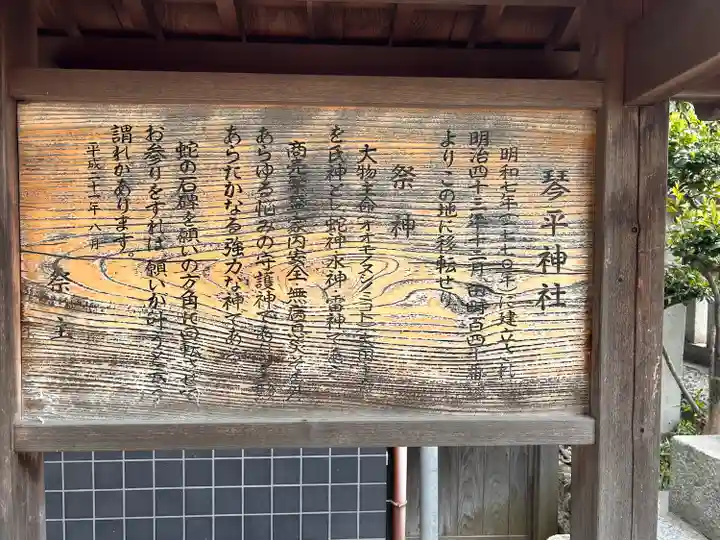 琴平神社
明和七年(一七七〇年)に建立され
明治四十三年十二月
よりこの地に移転せり
祭神
大物主命(オオモノヌシノミコト)
を氏神とし蛇神水神雷神である
商売繁盛家内安全無病息災その他
あらゆる悩みの守護神であり
あらたかなる強力な神である
蛇の石碑を願いの方角に回転させて
お参りをすれば願いが叶うと言う
謂れがあります。
平成二十一年八月
祭主